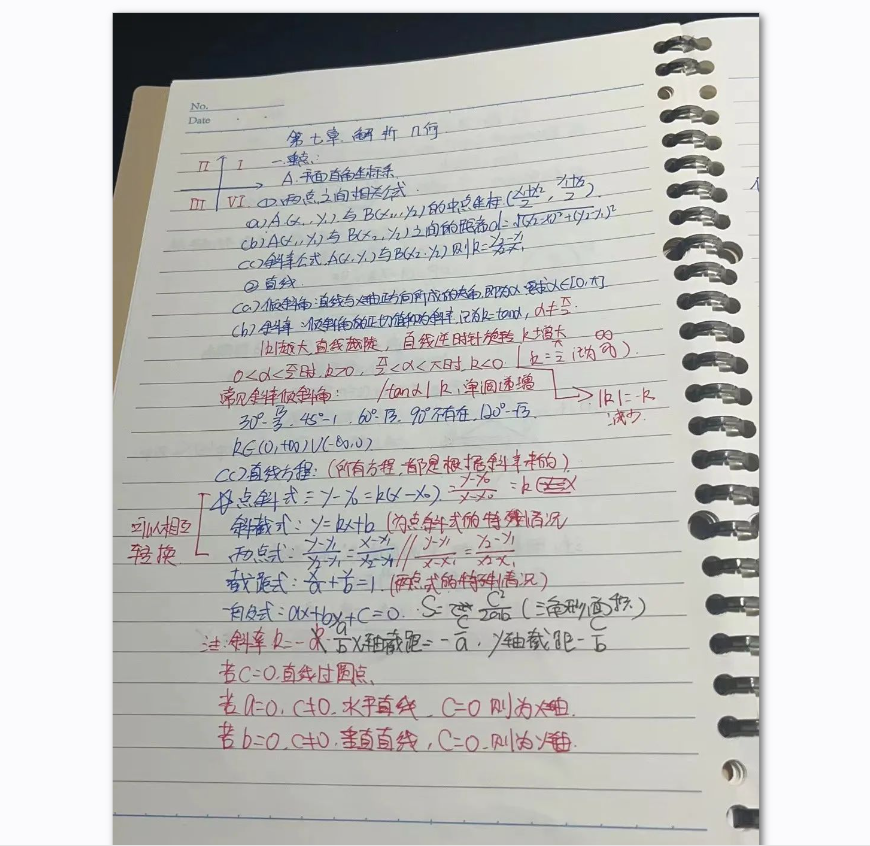 No.
Date
第七章 解析几何
II I
一.重点:
A.平面直角坐标系
III VI
①.两点之间相关公式.
(a) A(x₁,y₁)与B(x₂,y₂)的中点坐标(x₁+x₂/2, y₁+y₂/2)
(b) A(x₁,y₁)与B(x₂,y₂)之间的距离d=√(x₂-x₁)²+(y₂-y₁)²
(c)斜率公式.A(x₁,y₁)与B(x₂,y₂)则k=y₂-y₁/x₂-x₁
②直线
(a)倾斜角:直线与x轴正方向所成的夹角,即为α 要求α∈[0,π]
(b)斜率:倾斜角的正切值称为斜率,记为k=tanα, α≠π/2
|k|越大直线越陡, 直线逆时针旋转 k增大
0<α<π/2时,k>0, π/2<α<π时,k<0 (k=π/2 为∞).
常见斜率倾斜角: |tanα| k,单调递增
|k|=-k
减少.
30°-√3/3. 45°-1. 60°-√3. 90°不存在. 120°-√3.
k∈(0,+∞)∪(-∞,0)
(c)直线方程:(所有方程,都是根据斜率来的)
点斜式:y-y₀=k(x-x₀) y-y₀/x-x₀=k
斜截式:y=kx+b (为点斜式的特殊情况
可以相互
转换
两点式:y-y₁/y₂-y₁=x-x₁/x₂-x₁ // y-y₁/x-x₁=y₂-y₁/x₂-x₁
截距式:x/a+y/b=1. (两点式的特殊情况)
一般式:ax+by+c=0. S=c²/2ab (三角形面积)
注:斜率k=-a/b x轴截距=-c/a, y轴截距-c/b
若C=0.直线过圆点.
若a=0, c≠0.水平直线, C=0则为x轴.
若b=0.c≠0.垂直直线, C=0.则为y轴.